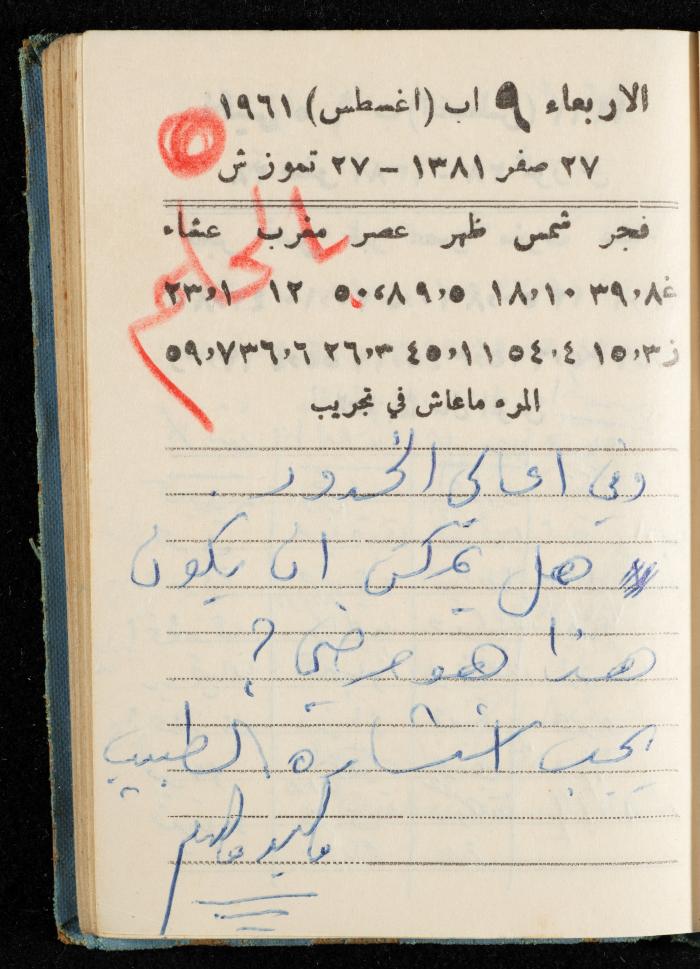 الاربعاء ٩ اب (اغسطس) ١٩٦١
٢٧ صفر ١٣٨١ – ٢٧ تموز ش
فجر شمس ظهر عصر مغرب عشاء
غ٨،٣٩ ١٠،١٨ ٥،٩ ٨،٥٠ ١٢ ١،٢٣
ز٣،١٥ ٤،٥٤ ١١،٤٥ ٣،٢٦ ٦،٣٦ ٧،٥٩
المرء ماعاش في تجريب
وفي اعالي الحدود .
هل يمكن ان يكون
هذا هو مرضي ؟
يجب استشارة الطبيب